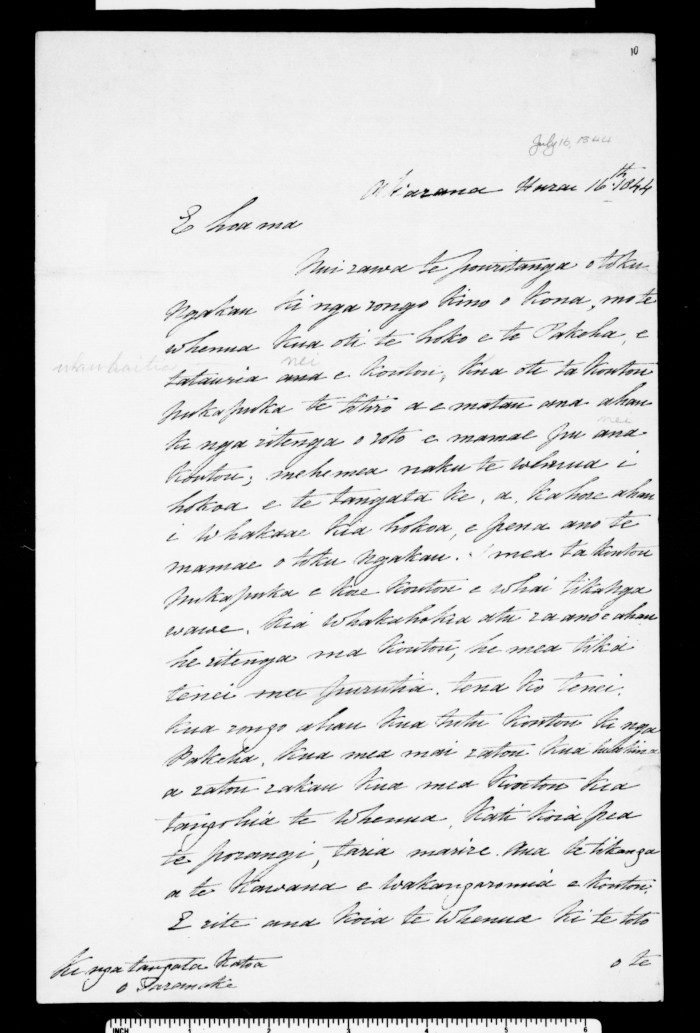 10
July 16, 1844
Akarana Hurai 16th 1844
E hoa ma
Nui rawa te pouritanga o toku
Ngakau ki nga rongo kino o kona, mo te
whenua kua oti te hoko e te Pakeha, e
nei
tatauria ana e koutou, kua oti ta koutou
pukapuka te titiro a e matau ana ahau
nei
ki nga ritenga o roto e mamae pu ana
koutou; mehemea naku te whenua i
hokoa e te tangata ke, a, kahore ahau
i whakaae kia hokoa, e pena ano te
mamae o toku Ngakau. I mea ta koutou
pukapuka e kore koutou e whai tikanga
wawe. Kia whakahokia atu ra ano e ahau
he ritenga ma koutou, he mea tika
tenei me puritia. tena ko tenei.
Kua rongo ahau kua tutu koutou ki nga
Pakeha. Kua mea mai ratou kua
a ratou rakau kua mea koutou kia
tangohia te whenua. Kati koia pea
te porangi, taria marire. Aua te tikanga
a te Kawana e wakangaromia e koutou.
E rite ana koia te whenua ki te toto
o te
Ki nga tangata katoa
o Taranaki
INCH 1 2 3 4 5 6